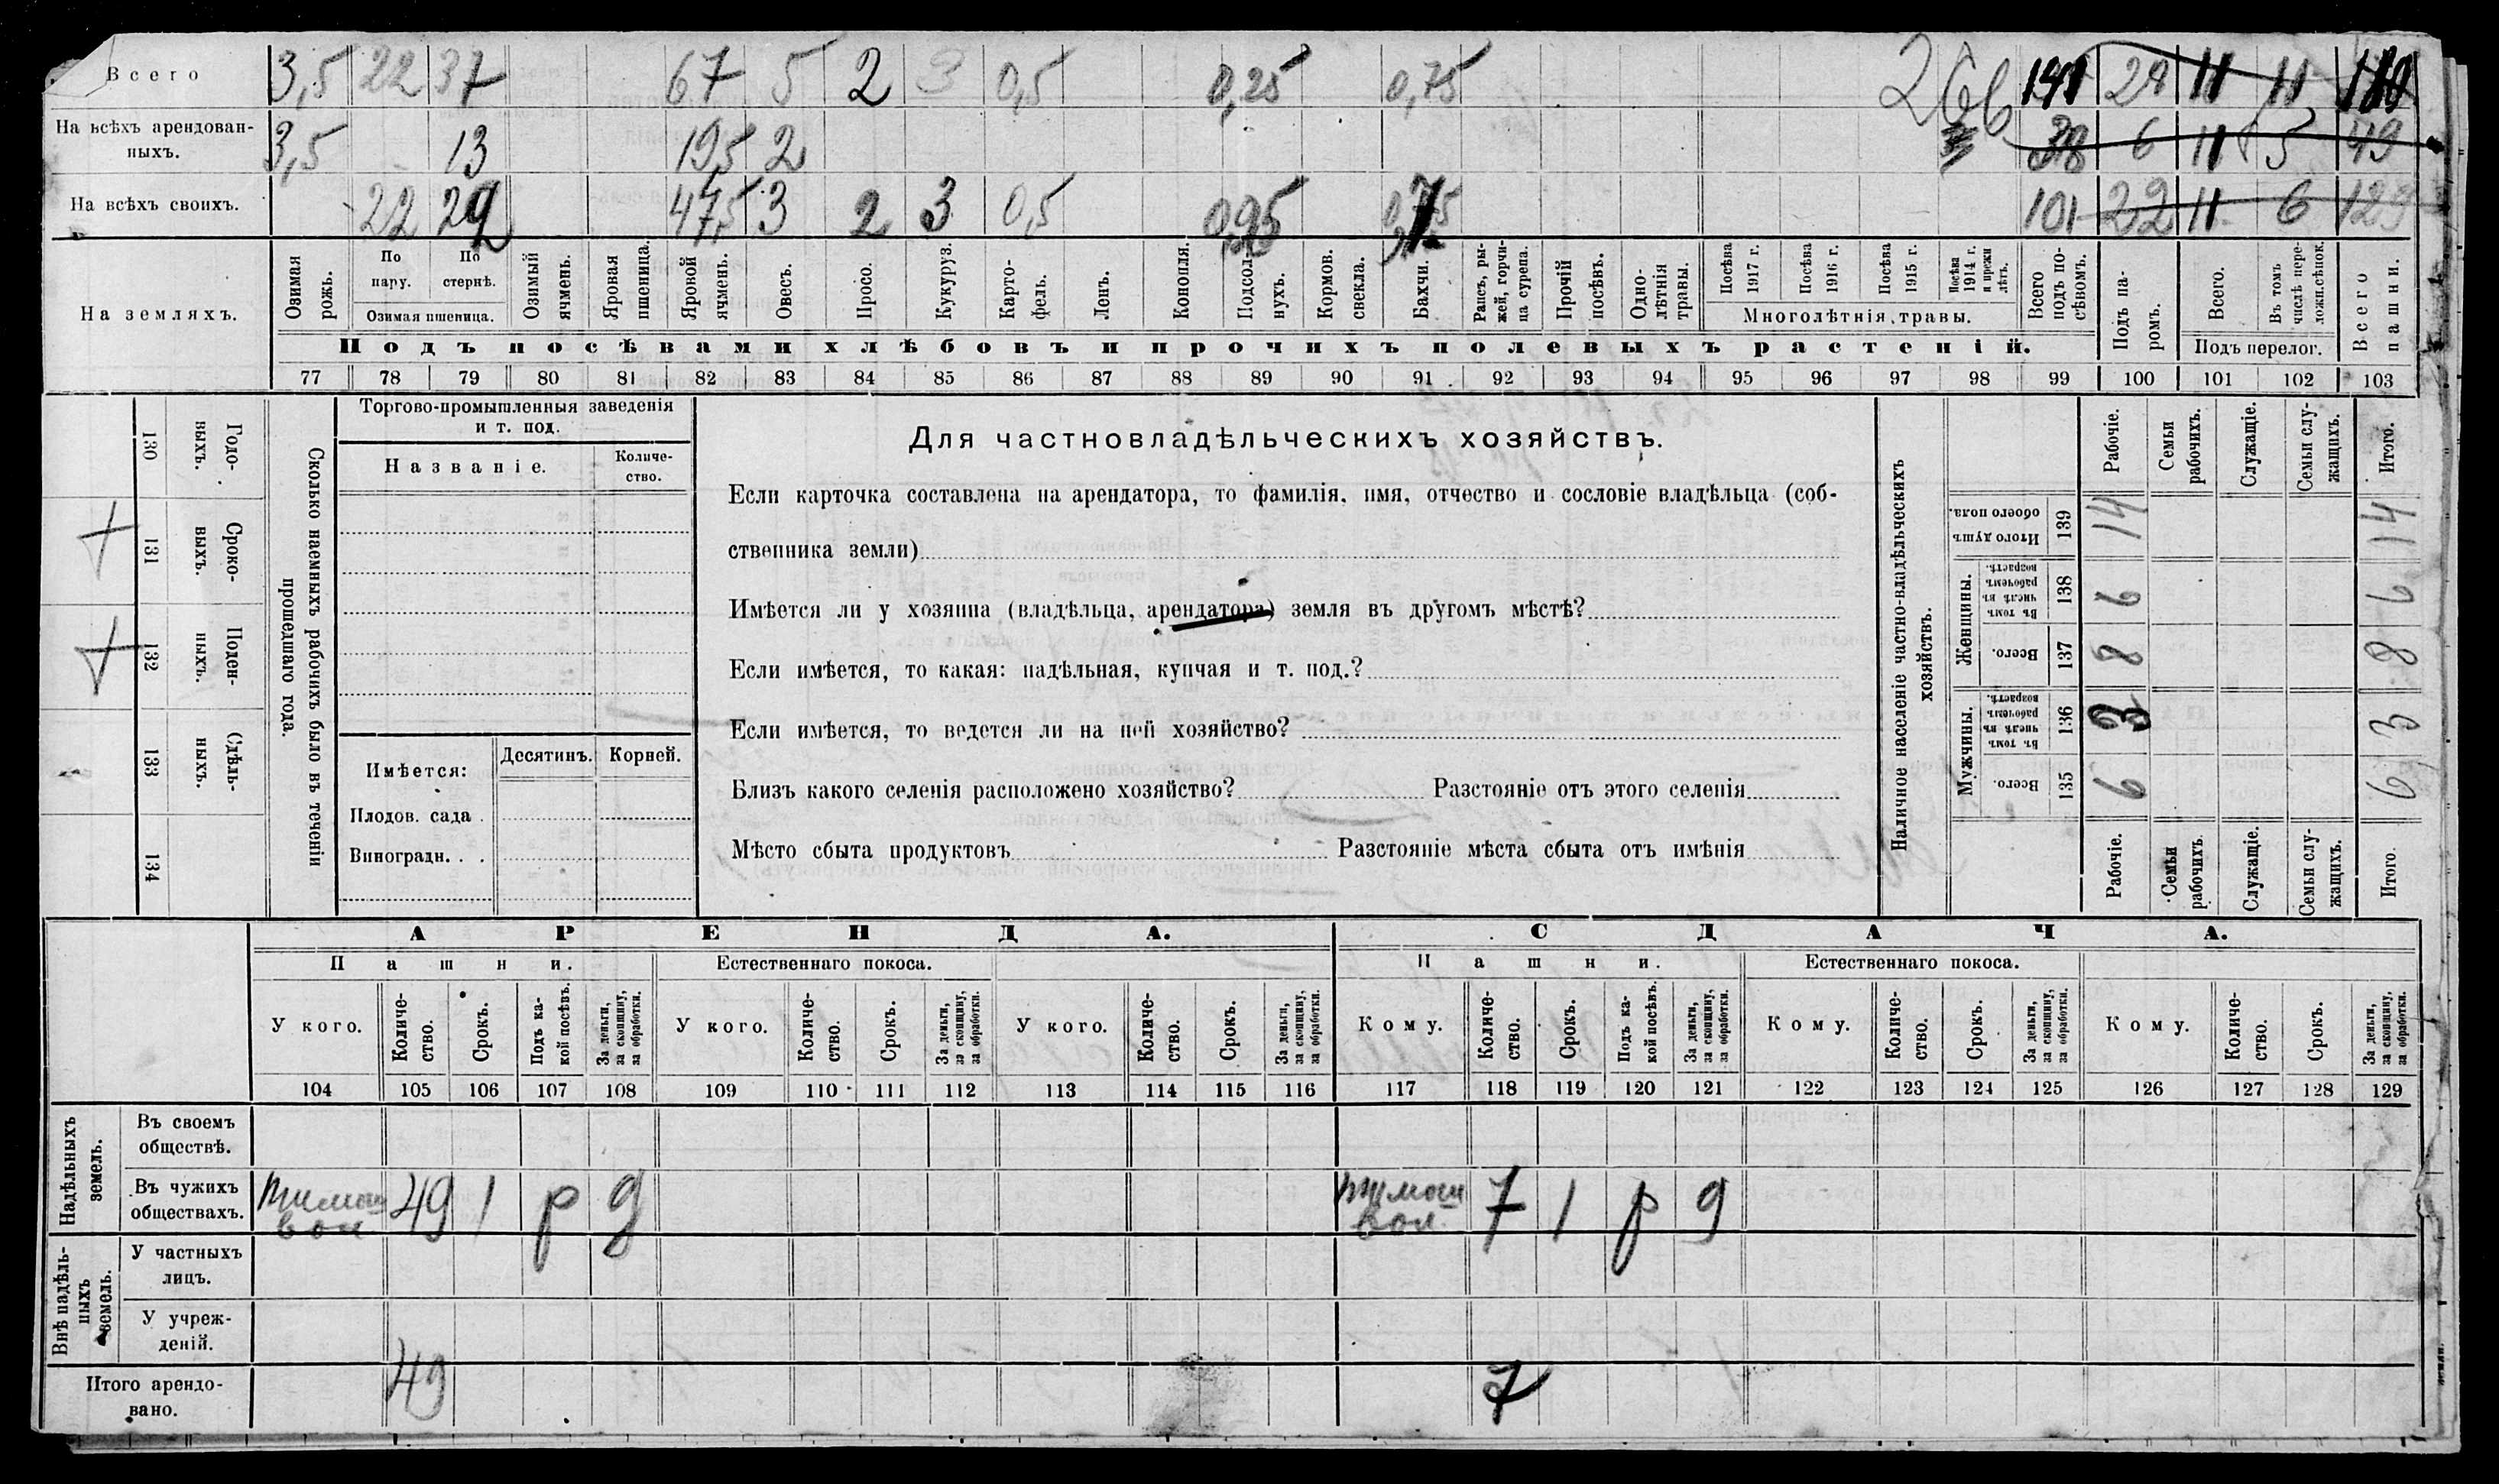 Всего 3,5 22 37 67 5 2 3 0,5 0,25 0,75 266 28 11 11
На всѣхъ арендован-
ныхъ. 3,5 13 19,5 2 38 6 11 5 49
На всѣхъ своихъ. 22 47,5 3 2 3 0,5 101 22 11 6 129
На земляхъ.
Озимая рожь.
По пару.
По стернѣ.
Озимая пшеница.
Озимый ячмень.
Яровая пшеница.
Яровой ячмень.
Овесъ.
Просо.
Кукуруз.
Карто-
фель.
Ленъ.
Конопля.
Подсол-
нухъ.
Кормов. свекла.
Бахчи.
Рапсъ, ры-
жей, горчи-
ца сурепа.
Прочій посѣвъ.
Одно-
лѣтнія травы.
Посѣва 1917 г.
Посѣва 1916 г.
Посѣва 1915 г.
Посѣва 1914 г. и прежн лѣтъ.
Многолѣтнія травы.
Всего подъ по-
сѣвомъ.
Подъ па-
ромъ.
Всего.
Въ томъ числѣ пере-
ложн.сѣнок.
Подъ перелог.
Всего пашни.
Подъ посѣвами хлѣбовъ и прочихъ полевыхъ растеній.
77 78 79 80 81 82 83 84 85 86 87 88 89 90 91 92 93 94 95 96 97 98 99 100 101 102 103
Годо-
выхъ.
130
Сроко-
выхъ.
131
Поден-
ныхъ.
132
Сдѣль-
ныхъ.
133
134
Сколько наемныхъ рабочихъ было въ теченіи
прошедшаго года.
Торгово-промышленныя заведенія
и т. под.
Названіе.
Количе-
ство.
Имѣется:
Десятинъ.
Корней.
Плодов. сада .
Виноградн. . .
Для частновладѣльческихъ хозяйствъ.
Если карточка составлена на арендатора, то фамилія, имя, отчество и сословіе владѣльца (соб-
ственника земли)
Имѣется ли у хозяина (владѣльца, арендатора) земля въ другомъ мѣстѣ?
Если имѣется, то какая: надѣльная, купчая и т. под.?
Если имѣется, то ведется ли на ней хозяйство?
Близъ какого селенія расположено хозяйство? Разстояніе отъ этого селенія
Мѣсто сбыта продуктовъ Разстояніе мѣста сбыта отъ имѣнія
Наличное населеніе частно-владѣльческихъ
хозяйствъ.
Рабочіе.
Семьи рабочихъ.
Служащіе.
Семьи слу-
жащихъ.
Итого.
Итого душъ обоего пола. 139 14 14
Женщины.
Въ томъ числѣ въ рабочемъ возрастѣ. 138 6 6
Всего. 137 8 8
Мужчины.
Въ томъ числѣ въ рабочемъ возрастѣ. 136 3 3
Всего. 135 6 6
Рабочіе.
Семьи рабочихъ
Служащіе.
Семьи слу-
жащихъ.
Итого
АРЕНДА. СДАЧА.
Пашни. Естественнаго покоса. Пашни. Естественнаго покоса.
У кого.
Количе-
ство.
Срокъ.
Подъ ка-
кой посѣвъ.
За деньги, за скопщину, за обработки.
У кого.
Количе-
ство.
Срокъ.
За деньги, за скопщину, за обработки.
У кого.
Количе-
ство.
Срокъ.
За деньги, за скопщину, за обработки.
Кому.
Количе-
ство.
Срокъ.
Подъ ка-
кой посѣвъ.
За деньги, за скопщину, за обработки.
Кому.
Количе-
ство.
Срокъ.
За деньги, за скопщину, за обработки.
Кому.
Количе-
ство.
Срокъ.
За деньги, за скопщину, за обработки.
104 105 106 107 108 109 110 111 112 113 114 115 116 117 118 119 120 121 122 123 124 125 126 127 128 129
Надѣльныхъ
земель.
Въ своемъ
обществѣ.
Въ чужихъ
обществахъ.
Тимош
вол 49 1 р д
Тимош
вол. 7 1 р д
Внѣ надѣль-
ныхъ
земель.
У частныхъ
лицъ.
У учреж-
деній.
Итого арендо-
вано. 49 7